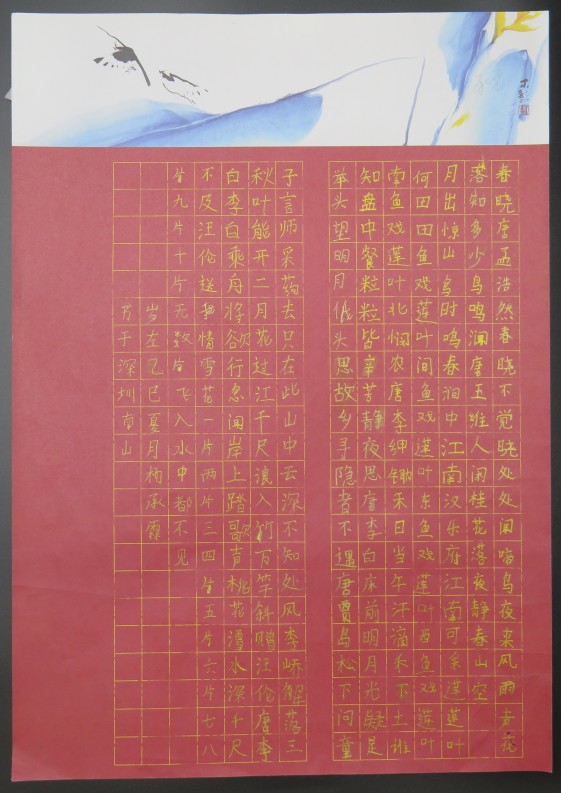 春晓唐孟浩然春晓不觉晓处处闻啼鸟夜来风雨声花
落知多少鸟鸣涧唐王维人闲桂花落夜静春山空
月出惊山鸟时鸣春涧中江南汉乐府江南可采莲莲叶
何田田鱼戏莲叶间鱼戏莲叶东鱼戏莲叶西鱼戏莲叶
南鱼戏莲叶北悯农唐李绅锄禾日当午汗滴禾下土谁
知盘中餐粒粒皆辛苦静夜思唐李白床前明月光疑是
举头望明月低头思故乡寻隐者不遇唐贾岛松下问童
子言师采药去只在此山中云深不知处风李峤解落三
秋叶能开二月花过江千尺浪入竹万竿斜赠汪伦唐李
白李白乘舟将欲行忽闻岸上踏歌声桃花潭水深千尺
不及汪伦送我情雪花一片两片三四片五片六片七八
片九片十片无数片飞入水中都不见
岁在乙巳夏月杨承霖
书于深圳南山